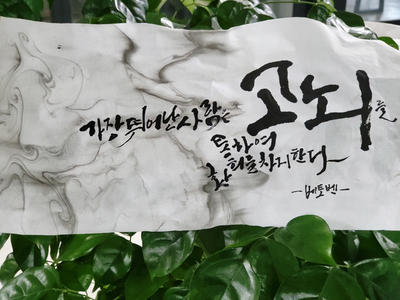 가장 뛰어난 사람은 고뇌를
통하여
환희를 차지한다
-베토벤-